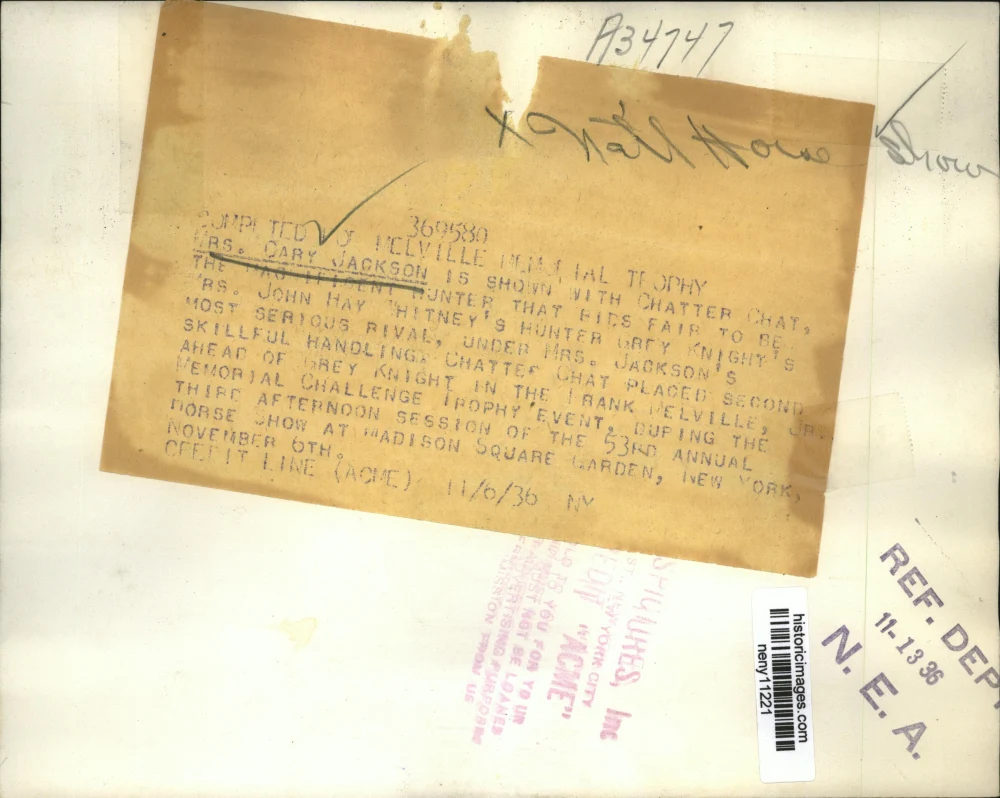 A34747
x Nat'l Horse Show
369580
COMPLTED FOR MELVILLE MEMORIAL TROPHY
MRS. CARY JACKSON IS SHOWN WITH CHATTER CHAT,
THE MAGNIFICENT HUNTER THAT BIDS FAIR TO BE
MRS. JOHN HAY WHITNEY'S HUNTER GREY KNIGHT'S
MOST SERIOUS RIVAL, UNDER MRS. JACKSON'S
SKILLFUL HANDLING, CHATTER CHAT PLACED SECOND
AHEAD OF GREY KNIGHT IN THE FRANK MELVILLE, JR.
MEMORIAL CHALLENGE TROPHY EVENT, DURING THE
THIRD AFTERNOON SESSION OF THE 53RD ANNUAL
HORSE SHOW AT MADISON SQUARE GARDEN, NEW YORK,
NOVEMBER 6TH.
CREDIT LINE (ACME) 11/6/36 NY
PICTURES, Inc
NEW YORK CITY
"ACME"
TO YOU FOR YOUR
MUST NOT BE LOANED
ADVERTISING PURPOSES
FROM US
historicimages.com
neny11221
REF. DEPT
11-13 36
N. E. A.